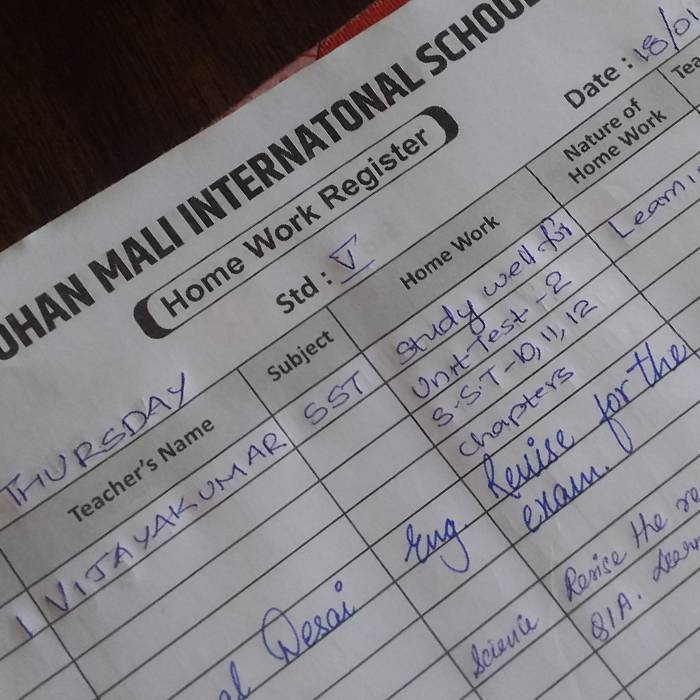 OHAN MALI INTERNATONAL SCHOOL
Home Work Register
Std : V
Date : 18/01
THURSDAY
Teacher's Name
Subject
Home Work
Nature of
Home Work
Tea
1 VIJAYAKUMAR SST Study well for Learni
Unit Test - 2
S.S.T - 10, 11, 12
chapters
Desai Eng. Revise for the
exam.
Science Revise the re
Q1A. Learn